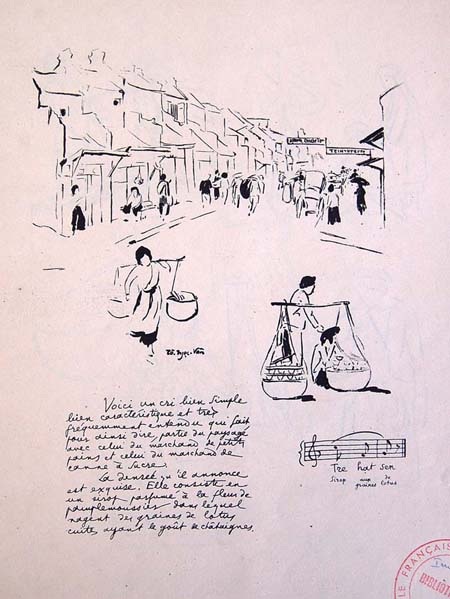 TEINTURERIE
Tô. Ngoc-Vân
Voici un cri bien simple
bien caractéristique et très
fréquemment entendu qui fait
pour ainsi dire, partie du paysage,
avec celui du marchand de petits
pains et celui du marchand de
canne à sucre.
La denrée qu'il annonce
est exquise. Elle consiste en
un sirop parfumé à la fleur de
pamplemoussier dans lequel
nagent des graines de lotus
cuites ayant le goût de châtaignes.
Tre hat sen
Sirop aux graines de lotus
LE FRANÇAIS
BIBLIOT